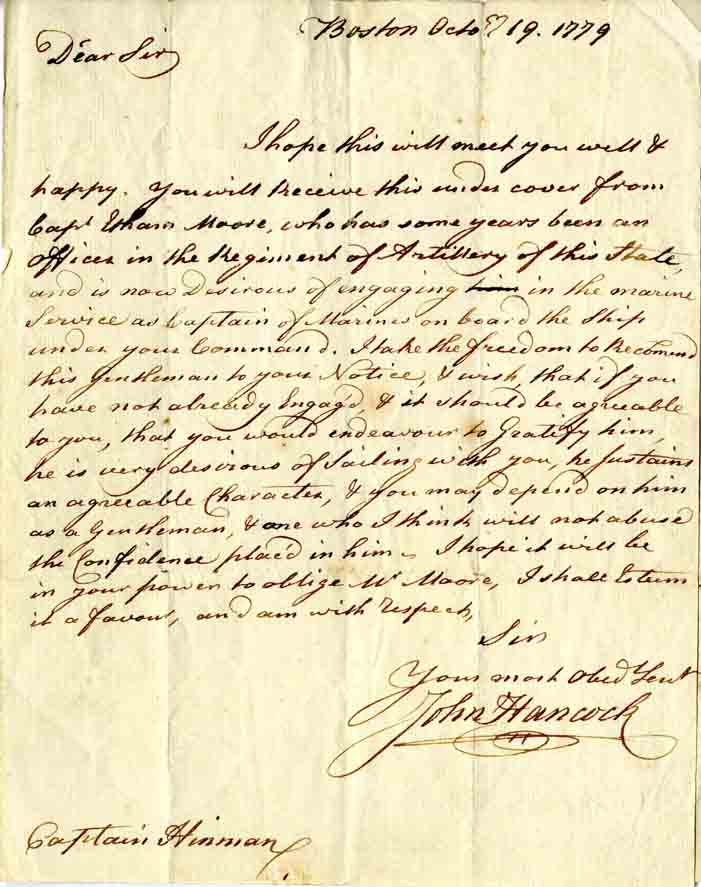 Boston Octor 19. 1779
Dear Sir
I hope this will meet you well &
happy. You will Receive this under cover from
Capt Etham Moore, who has some years been an
officer in the Regiment of Artillery of this State,
and is now Desirous of engaging him in the marine
Service as Captain of Marines on board the Ship
under your Command. I take the freedom to Recomend
this Gentleman to your Notice, & wish, that if you
have not already Engag'd, & it should be agreeable
to you, that you would endeavour to Gratify him,
he is very desirous of Sailing with you, he Sustains
an agreeable Character, & you may depend on him
as a Gentleman, & one who I think will not abuse
the Confidence plac'd in him. I hope it will be
in your power to oblige Mr Moore, I shall Esteem
it a favour, and am with Respect,
Sir
Your most Obed Servt
John Hancock
Captain Hinman